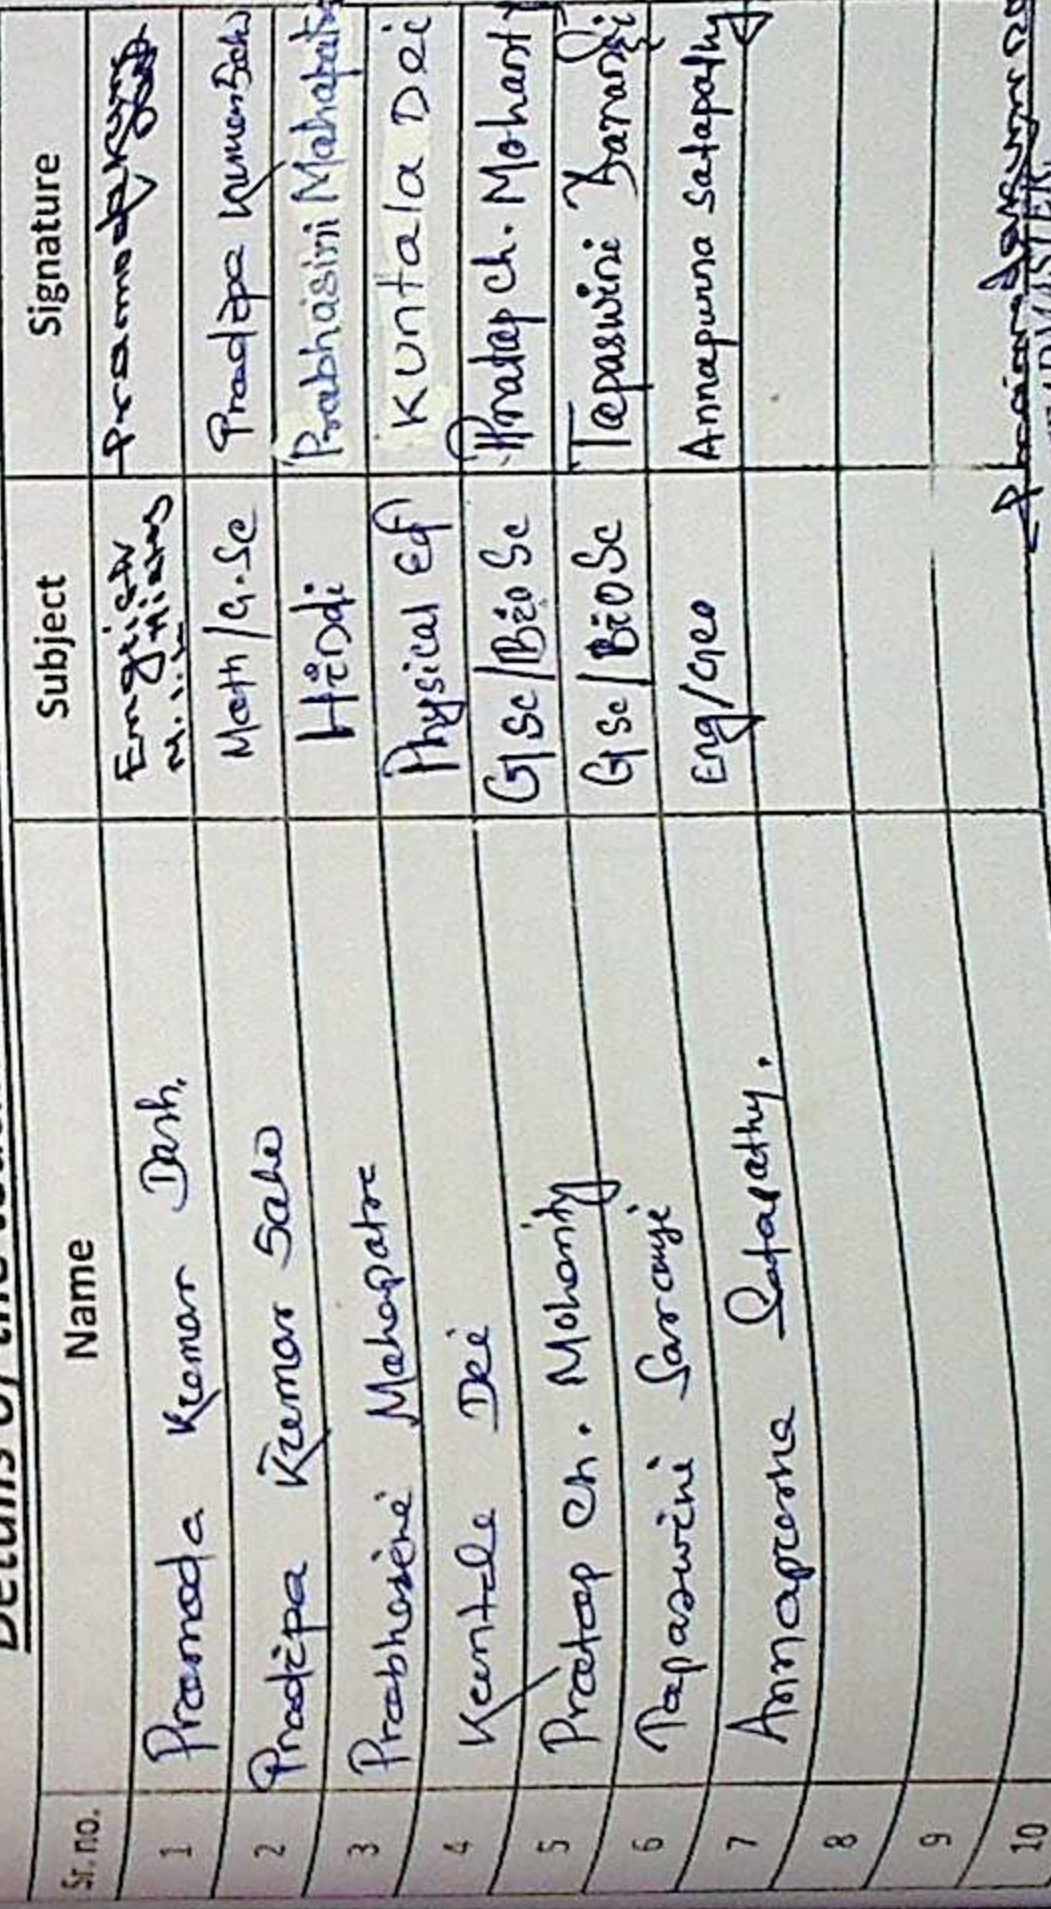 Details of the
Sr. no. Name Subject Signature
1 Pramoda Kumar Dash. English
2 Pradipa Kumar Sahu Math/G.Sc Pradipa Kumar Sahu
3 Prabhasini Mahapatra Hindi Prabhasini Mahapatra
4 Kuntala Dei Physical Edn Kuntala Dei
5 Pratap Ch. Mohanty G/Sc/BioSc Pratap Ch. Mohanty
6 Tapaswini Sarangi G/Sc/BioSc Tapaswini Sarangi
7 Annapurna Satapathy. Eng/Geo Annapurna Satapathy
8
9
10